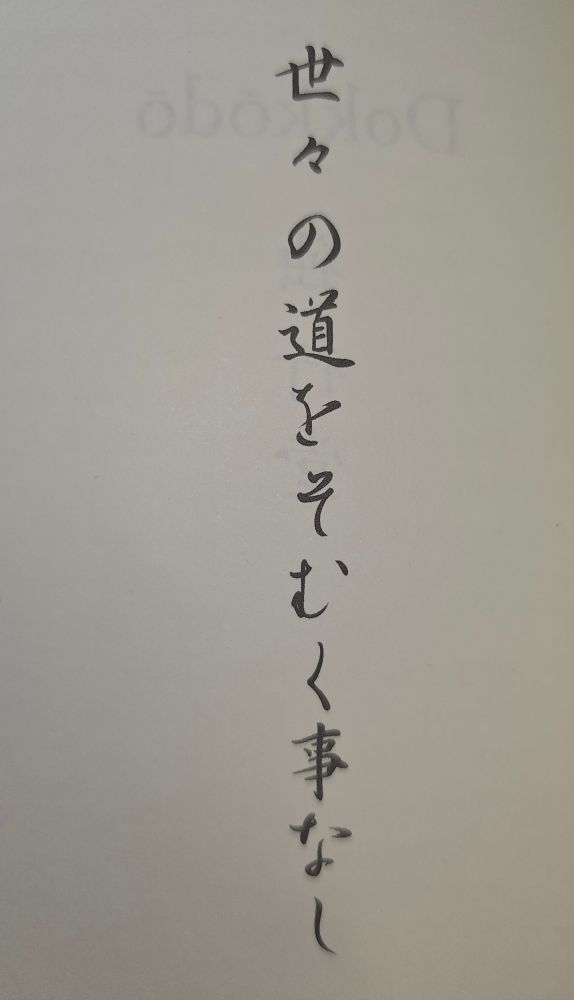 世々の道をそむく事なし
Dokkōdō